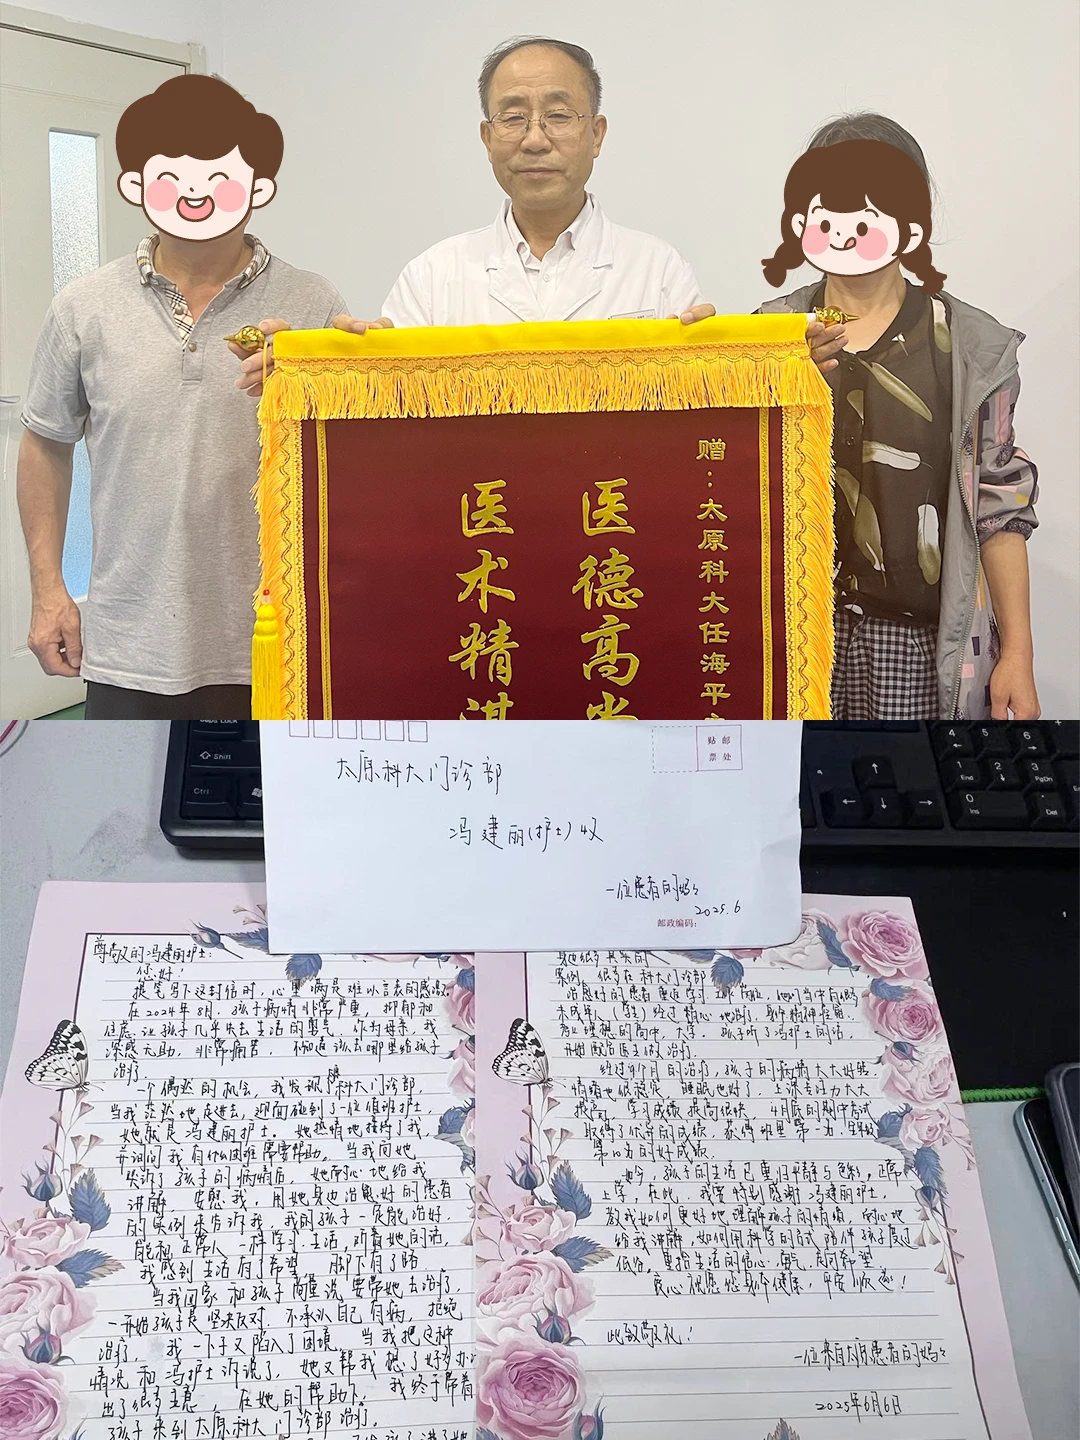 赠：太原科大任海平
医德高尚
医术精湛
Caps Lock
Shift
Ctrl
太原科大门诊部
冯建丽(护士)收
一位患者的妈妈
2025.6
贴邮
票处
邮政编码：
4
5
6
1
End
2
3
PgDn
0
Ins
Del
尊敬的冯建丽护士：
您好！
提笔写下这封信时，心里满是难以言表的感激。
在2024年8月，孩子病情非常严重，抑郁和
焦虑让孩子几乎失去生活的勇气。作为母亲，我
深感无助，非常痛苦，不知道该去哪里给孩子
治疗。
一个偶然的机会，我发现科大门诊部，
当我茫然地走进去，迎面碰到了一位值班护士，
她就是冯建丽护士。她热情地接待了我，
并询问我有什么困难需要帮助。当我向她
诉说了孩子的病情后，她耐心地给我
讲解，安慰我，用她身边治愈好的患者
的案例来告诉我，我的孩子一定能治好，
能和正常人一样学习生活，听着她的话，
我感到生活有了希望，脚下有了路。
当我回家和孩子商量说要带她去治疗，
一开始孩子是坚决反对，不承认自己有病，拒绝
治疗，我一下子又陷入了困境，当我把这种
情况和冯护士诉说了，她又帮我想了好多办法
出了很多主意，在她的帮助下，我终于带着
孩子来到太原科大门诊部治疗。
案例，很多在科大门诊部
治愈好的患者重返学习、工作岗位，她们当中有很多
未成年人（孩）经过精心地治疗，
理想的高中、大学。孩子听了冯护士的话，
开始配合医生的治疗。
经过4个月的治疗，孩子的病情大大好转，
情绪也很稳定，睡眠也好了，上课专注力大大
提高，学习成绩提高很快，4月底的期中考试
取得了优异的成绩，获得班里第一为，全年级
第10为的好成绩。
如今，孩子的生活已重归平静与色彩，正常
上学，在此，我要特别感谢冯建丽护士，
教我如何更好地理解孩子的情绪，耐心地
给我讲解，如何用科学的方式陪伴孩子度过
低谷。重拾生活的信心、勇气和希望。
衷心祝愿您身体健康，平安顺遂！
此致敬礼！
一位来自太原患者的妈妈
2025年6月6日